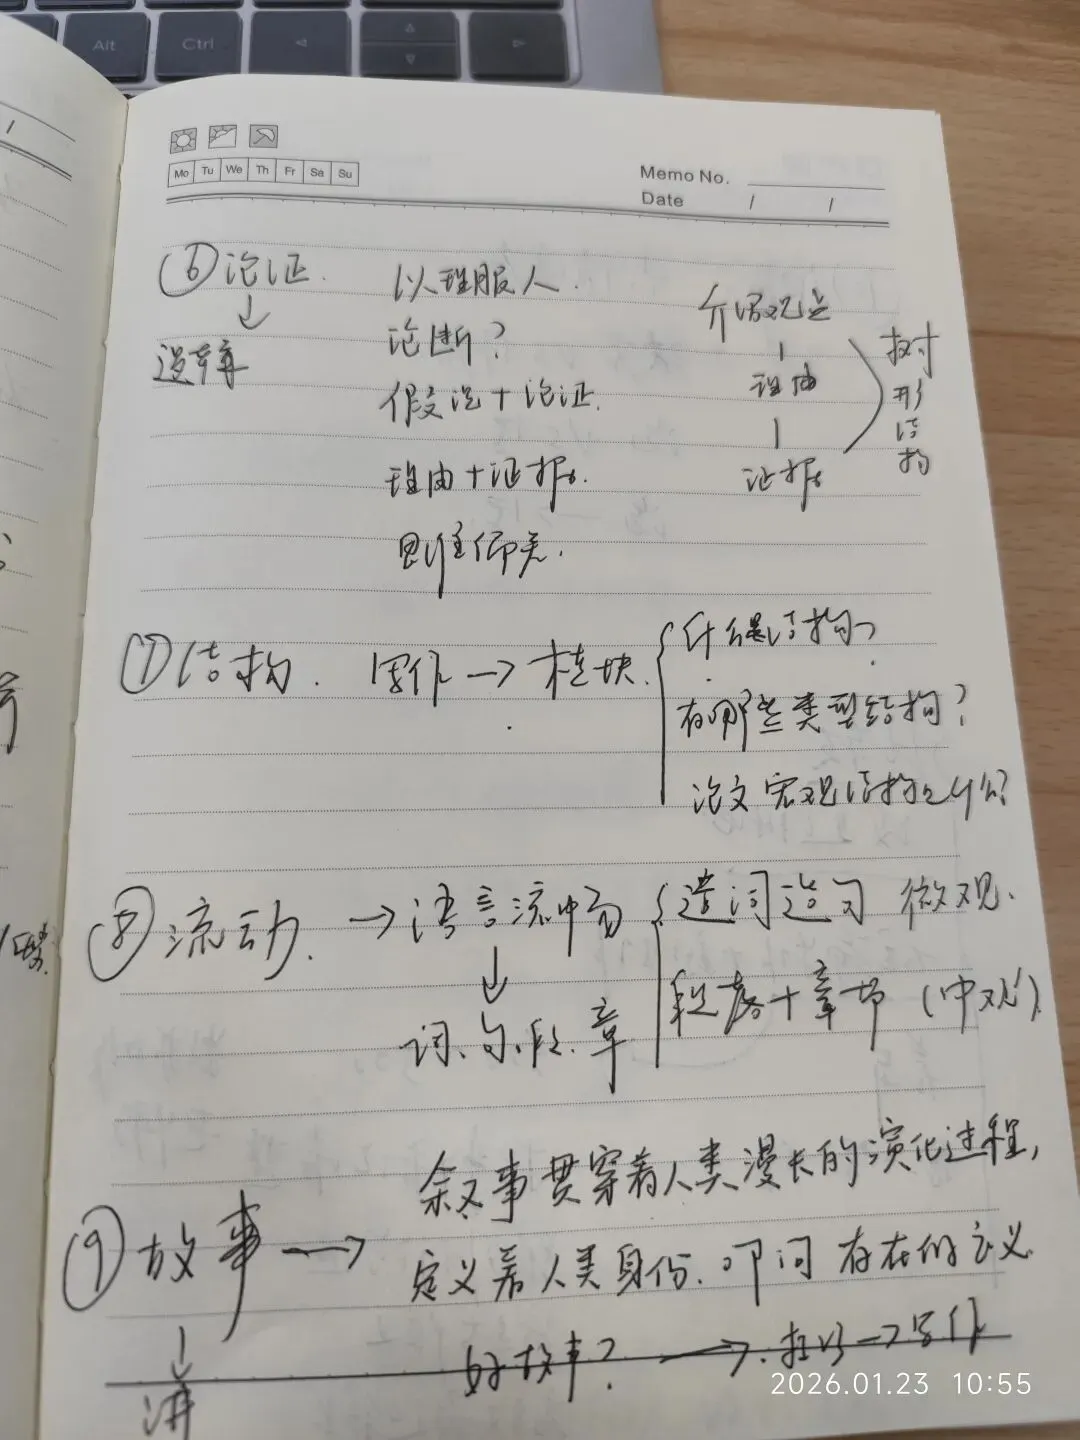 Alt
Ctrl
Mo Tu We Th Fr Sa Su
Memo No.
Date / /
⑥论证. 以理服人.
↓
逻辑
论断?
假设+论证.
理由+证据.
介绍观点
理由
证据
树形结构
⑦结构. 写作→模块.
什么是结构?
有哪些类型结构?
论文宏观结构是什么?
⑧流动. →语言流畅
↓
词、句、段、章
遣词造句 微观.
段落+章节 (中观).
⑨故事→
↓
讲
叙事贯穿着人类漫长的演化过程,
定义着人类身份.叩问存在的意义.
好故事? → →写作
2026.01.23 10:55